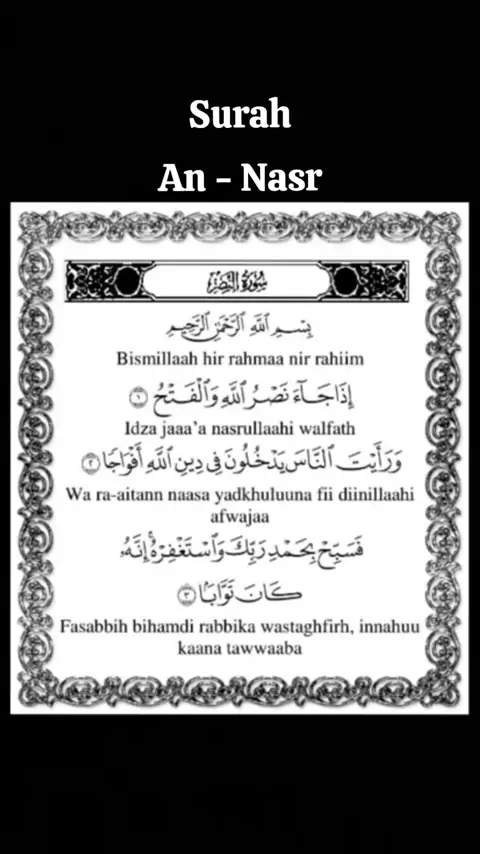 Surah
An - Nasr
سُورَةُ النَّصْرِ
بِسْمِ ٱللَّهِ ٱلرَّحْمَٰنِ ٱلرَّحِيمِ
Bismillaah hir rahmaa nir rahiim
إِذَا جَآءَ نَصْرُ ٱللَّهِ وَٱلْفَتْحُ ١
Idza jaaa'a nasrullaahi walfath
وَرَأَيْتَ ٱلنَّاسَ يَدْخُلُونَ فِى دِينِ ٱللَّهِ أَفْوَاجًا ٢
Wa ra-aitann naasa yadkhuluuna fii diinillaahi
afwajaa
فَسَبِّحْ بِحَمْدِ رَبِّكَ وَٱسْتَغْفِرْهُ ۚ إِنَّهُۥ
كَانَ تَوَّابًۢا ٣
Fasabbih bihamdi rabbika wastaghfirh, innahuu
kaana tawwaaba